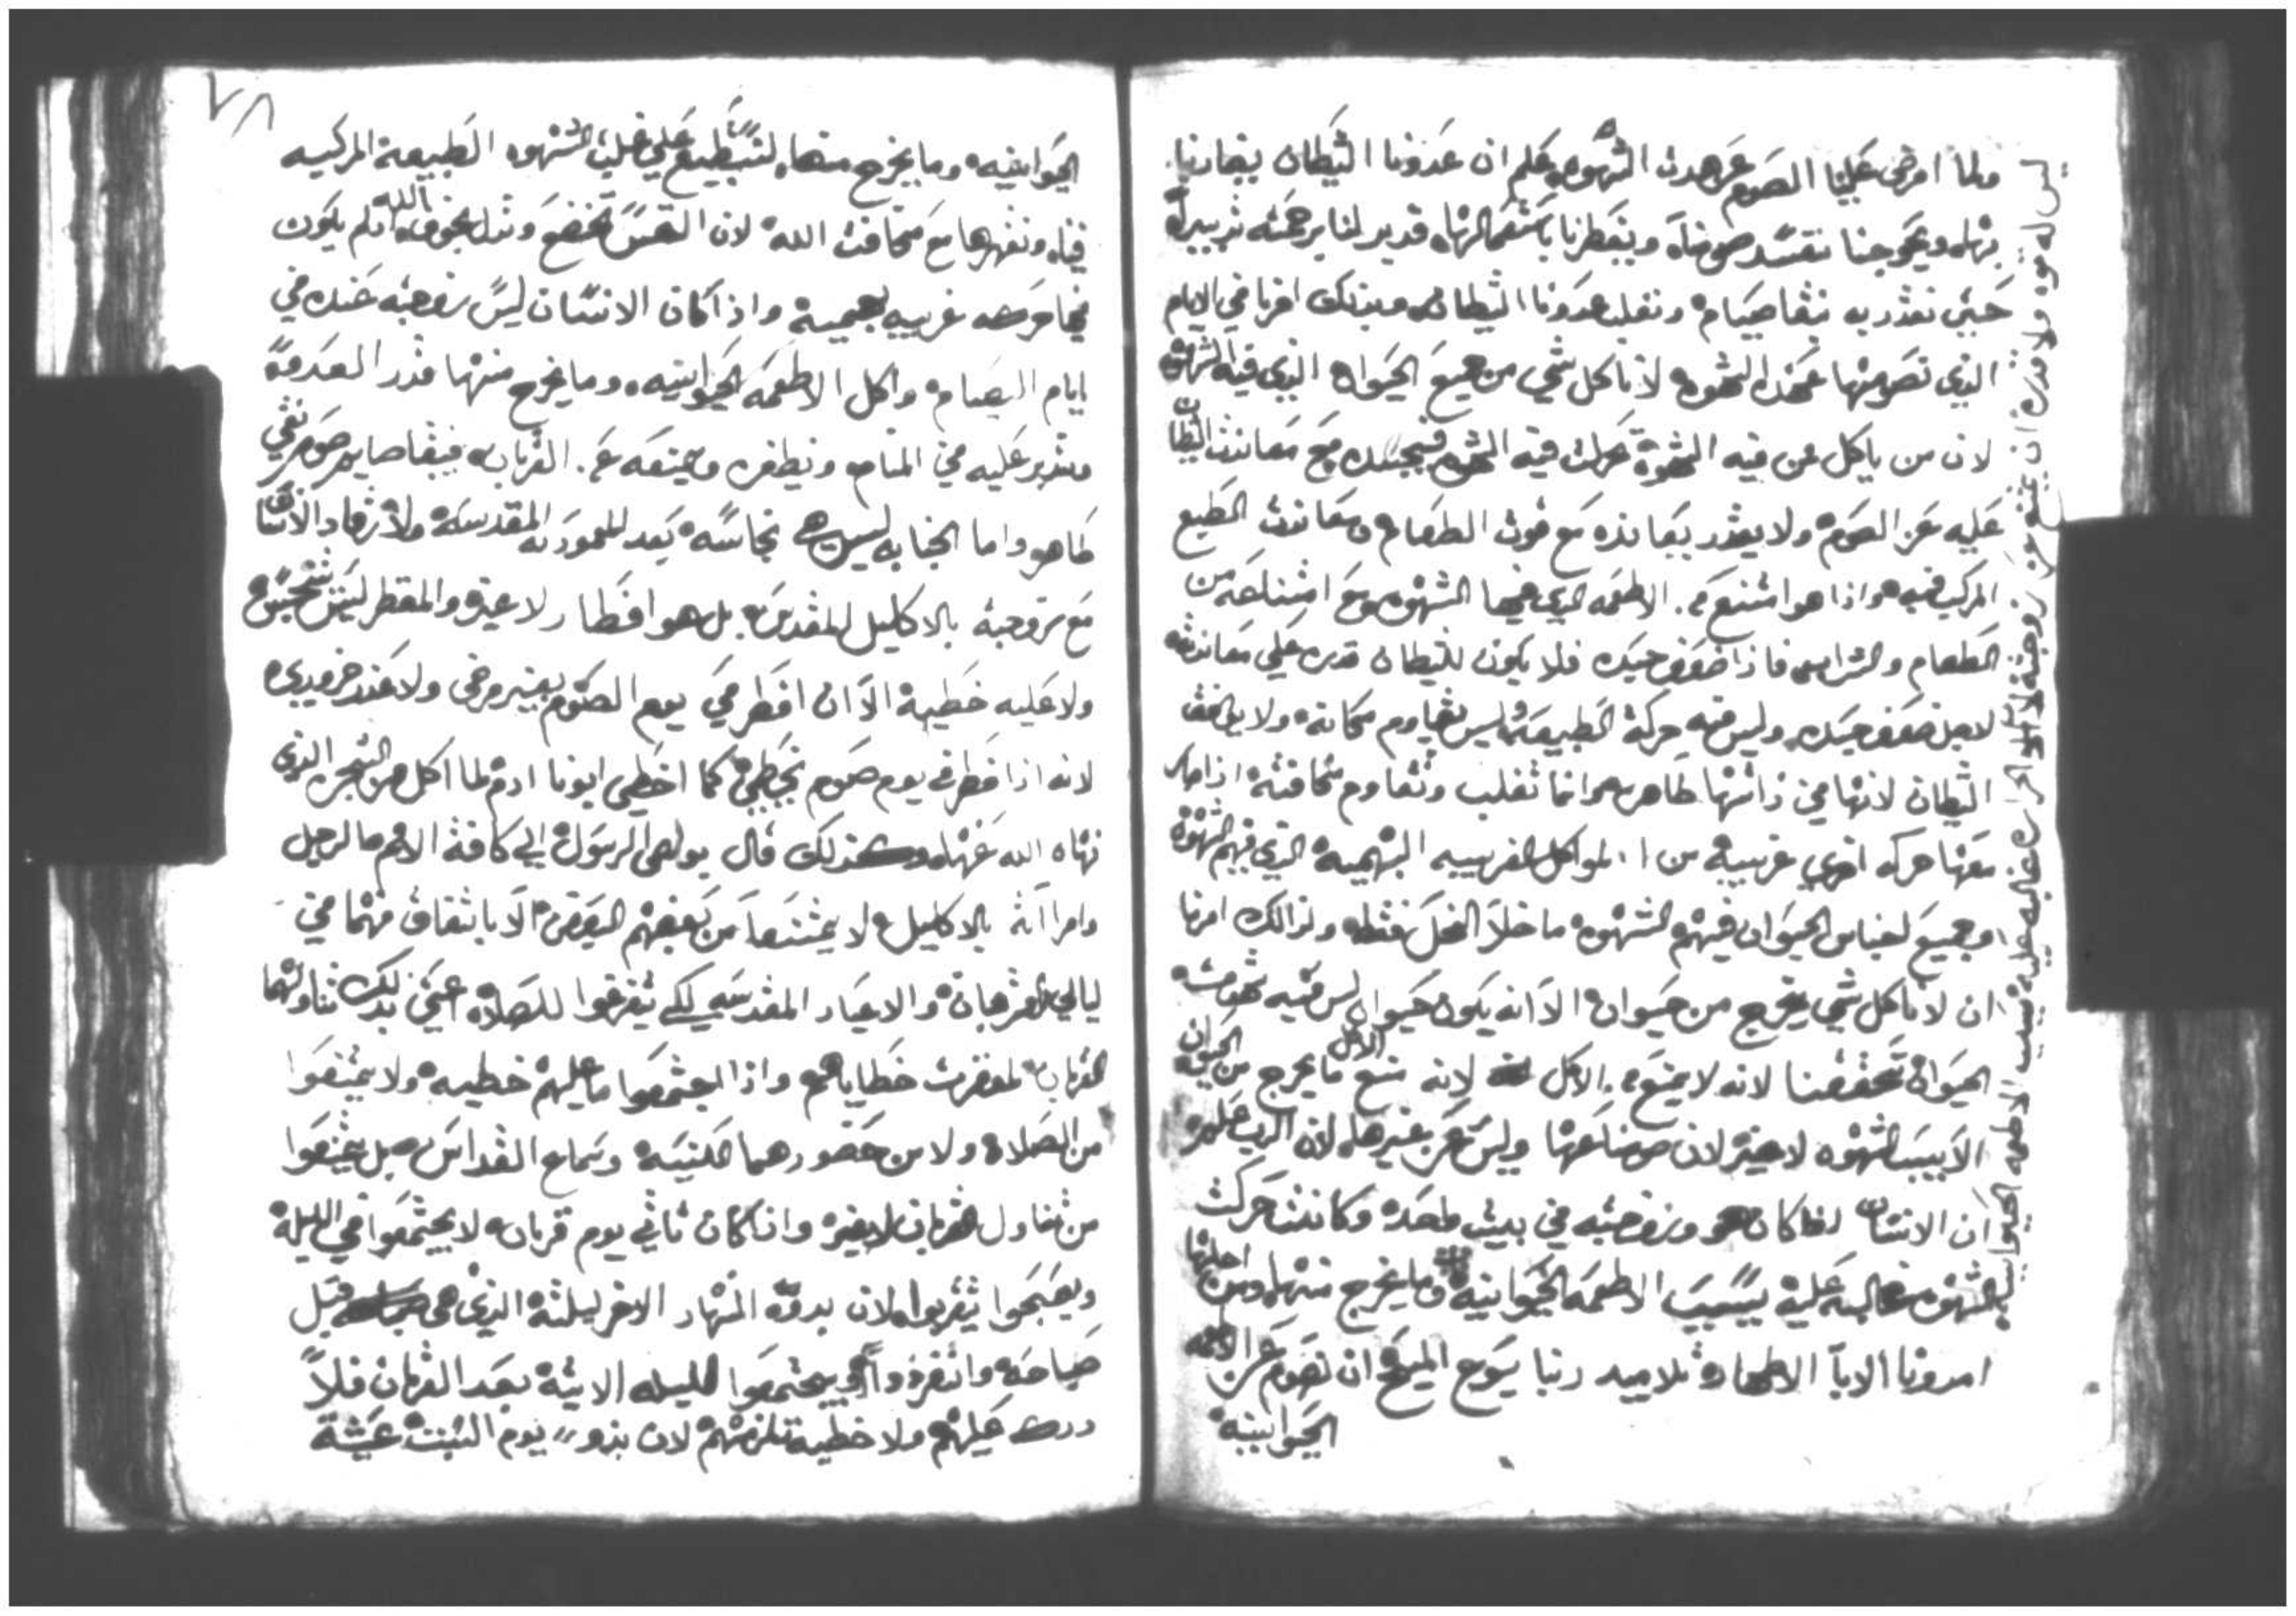 ولما افرض علينا الصوم عن هدت الشهوه علم ان عدونا الشيطان يعاندنا
بها ويحوجنا نفسد صومنا ويفطرنا باشتعالها قدبر لنا برحمته تدبيراً
حتي نقدر به نبقا صيام ونغلب عدونا الشيطان وبذلك امرنا في الايام
الذي نصومها عن الشهوه لا ناكل شي من جميع الحيوان الذي فيه الشهوة
لان من ياكل من فيه الشهوة تحركت فيه الشهوه في جسده مع معاندت الشيطان
عليه عن الصوم ولا يقدر يعانده مع قوت الطعام ومعاندت الطبع
المركب فيه واذا هو امتنع من الاطعمه الذي فيها الشهوه ومع امتناعه من
الطعام والشراب فاذا ضعف جسده فلا يكون للشيطان قدره علي معاندته
لاجل ضعف جسده وليس فيه حركة الطبيعه وليس تقاوم مكانه ولا
الشيطان لانها في ذاتها طاهره وانما تغلب وتقاوم مخافته اذا صار
معها حركه اخري غريبة من المواكل الغريبه البهيمية الذي فيهم الشهوة
وجميع اجناس الحيوان فيهم الشهوه ما خلا النحل فقط ولذالك امرنا
ان لا ناكل شي يخرج من حيوان الا انه يكون حيوان ليس فيه شهوت
الحيوان تحققنا لانه لا يمنع من الاكل لانه منع الاكل ما يخرج من الحيوان
الا بسبب الشهوه لا غير لان صومنا عنها وليس عن غيرها لان الرب علم
ان الانسان اذا كان هو وزوجته في بيت واحد وكانت حركت
الشهوه غالبه عليه بسبب الاطعمه الحيوانية وما يخرج منها ومن اجلها
امرونا الابا الاطهار تلاميد ربنا يسوع المسيح ان نصوم عن الاطعمه
الحيوانية
ليس له قوه ولا قدره ان يمتنع عن زوجته لان الحراره غالبه عليه بسبب الاطعمه الحيوانيه
٧٨
الحيوانيه وما يخرج منها لنستطيع علي غلبت الشهوه الطبيعة المركبه
فينا ونقهرها مع مخافت الله لان النفس تخضع وتذل بخوف الله ان لم يكون
غريبه بهيمية واذا كان الانسان ليس زوجته عنده في
ايام الصيام واكل الاطعمه الحيوانيه وما يخرج منها قدر العدو
عليه في المنام ويفطره ويمنعه عن القربان فيبقا صايم صوم نقي
طاهر واما الجنابه ليس هي نجاسه بعد المعموديه المقدسه ولا رقاد الانسان
مع زوجته بالاكليل المقدس بل هو افطار لا غيره والمفطر ليس يتنجس
ولا عليه خطية الا ان افطر في يوم الصوم بغير مرض ولا عند ضروري
لانه اذا فطر في يوم صوم يخطي كما اخطي ابونا ادم لما اكل من الشجره الذي
نهاه الله عنها وكذلك قال بولص الرسول الي كافة الامم ما لرجل
وامراته بالاكليل لا يمتنعا من بعضهم البعض الا باتفاق منهما في
ليالي القربان والاعياد المقدسه لكي يتفرغوا للصلاه اعني بذلك تناولهما
القربان لمغفرت خطاياهم واذا اجتمعوا ما عليهم خطيه ولا يمتنعوا
من الصلاه ولا من حضورهما الكنيسه وسماع القداس بل يمتنعوا
من تناول القربان لا غير واذا كان ثاني يوم قربان لا يجتمعوا في الليلة
ويصبحوا يتقربوا لان بدوه النهار الاخر ليلته الذي هي قبل
صباحه وانفردوا او يجتمعوا الليله الاتية بعد القربان فلا
درك عليهم ولا خطية تلزمهم لان بدو يوم السبت عشية